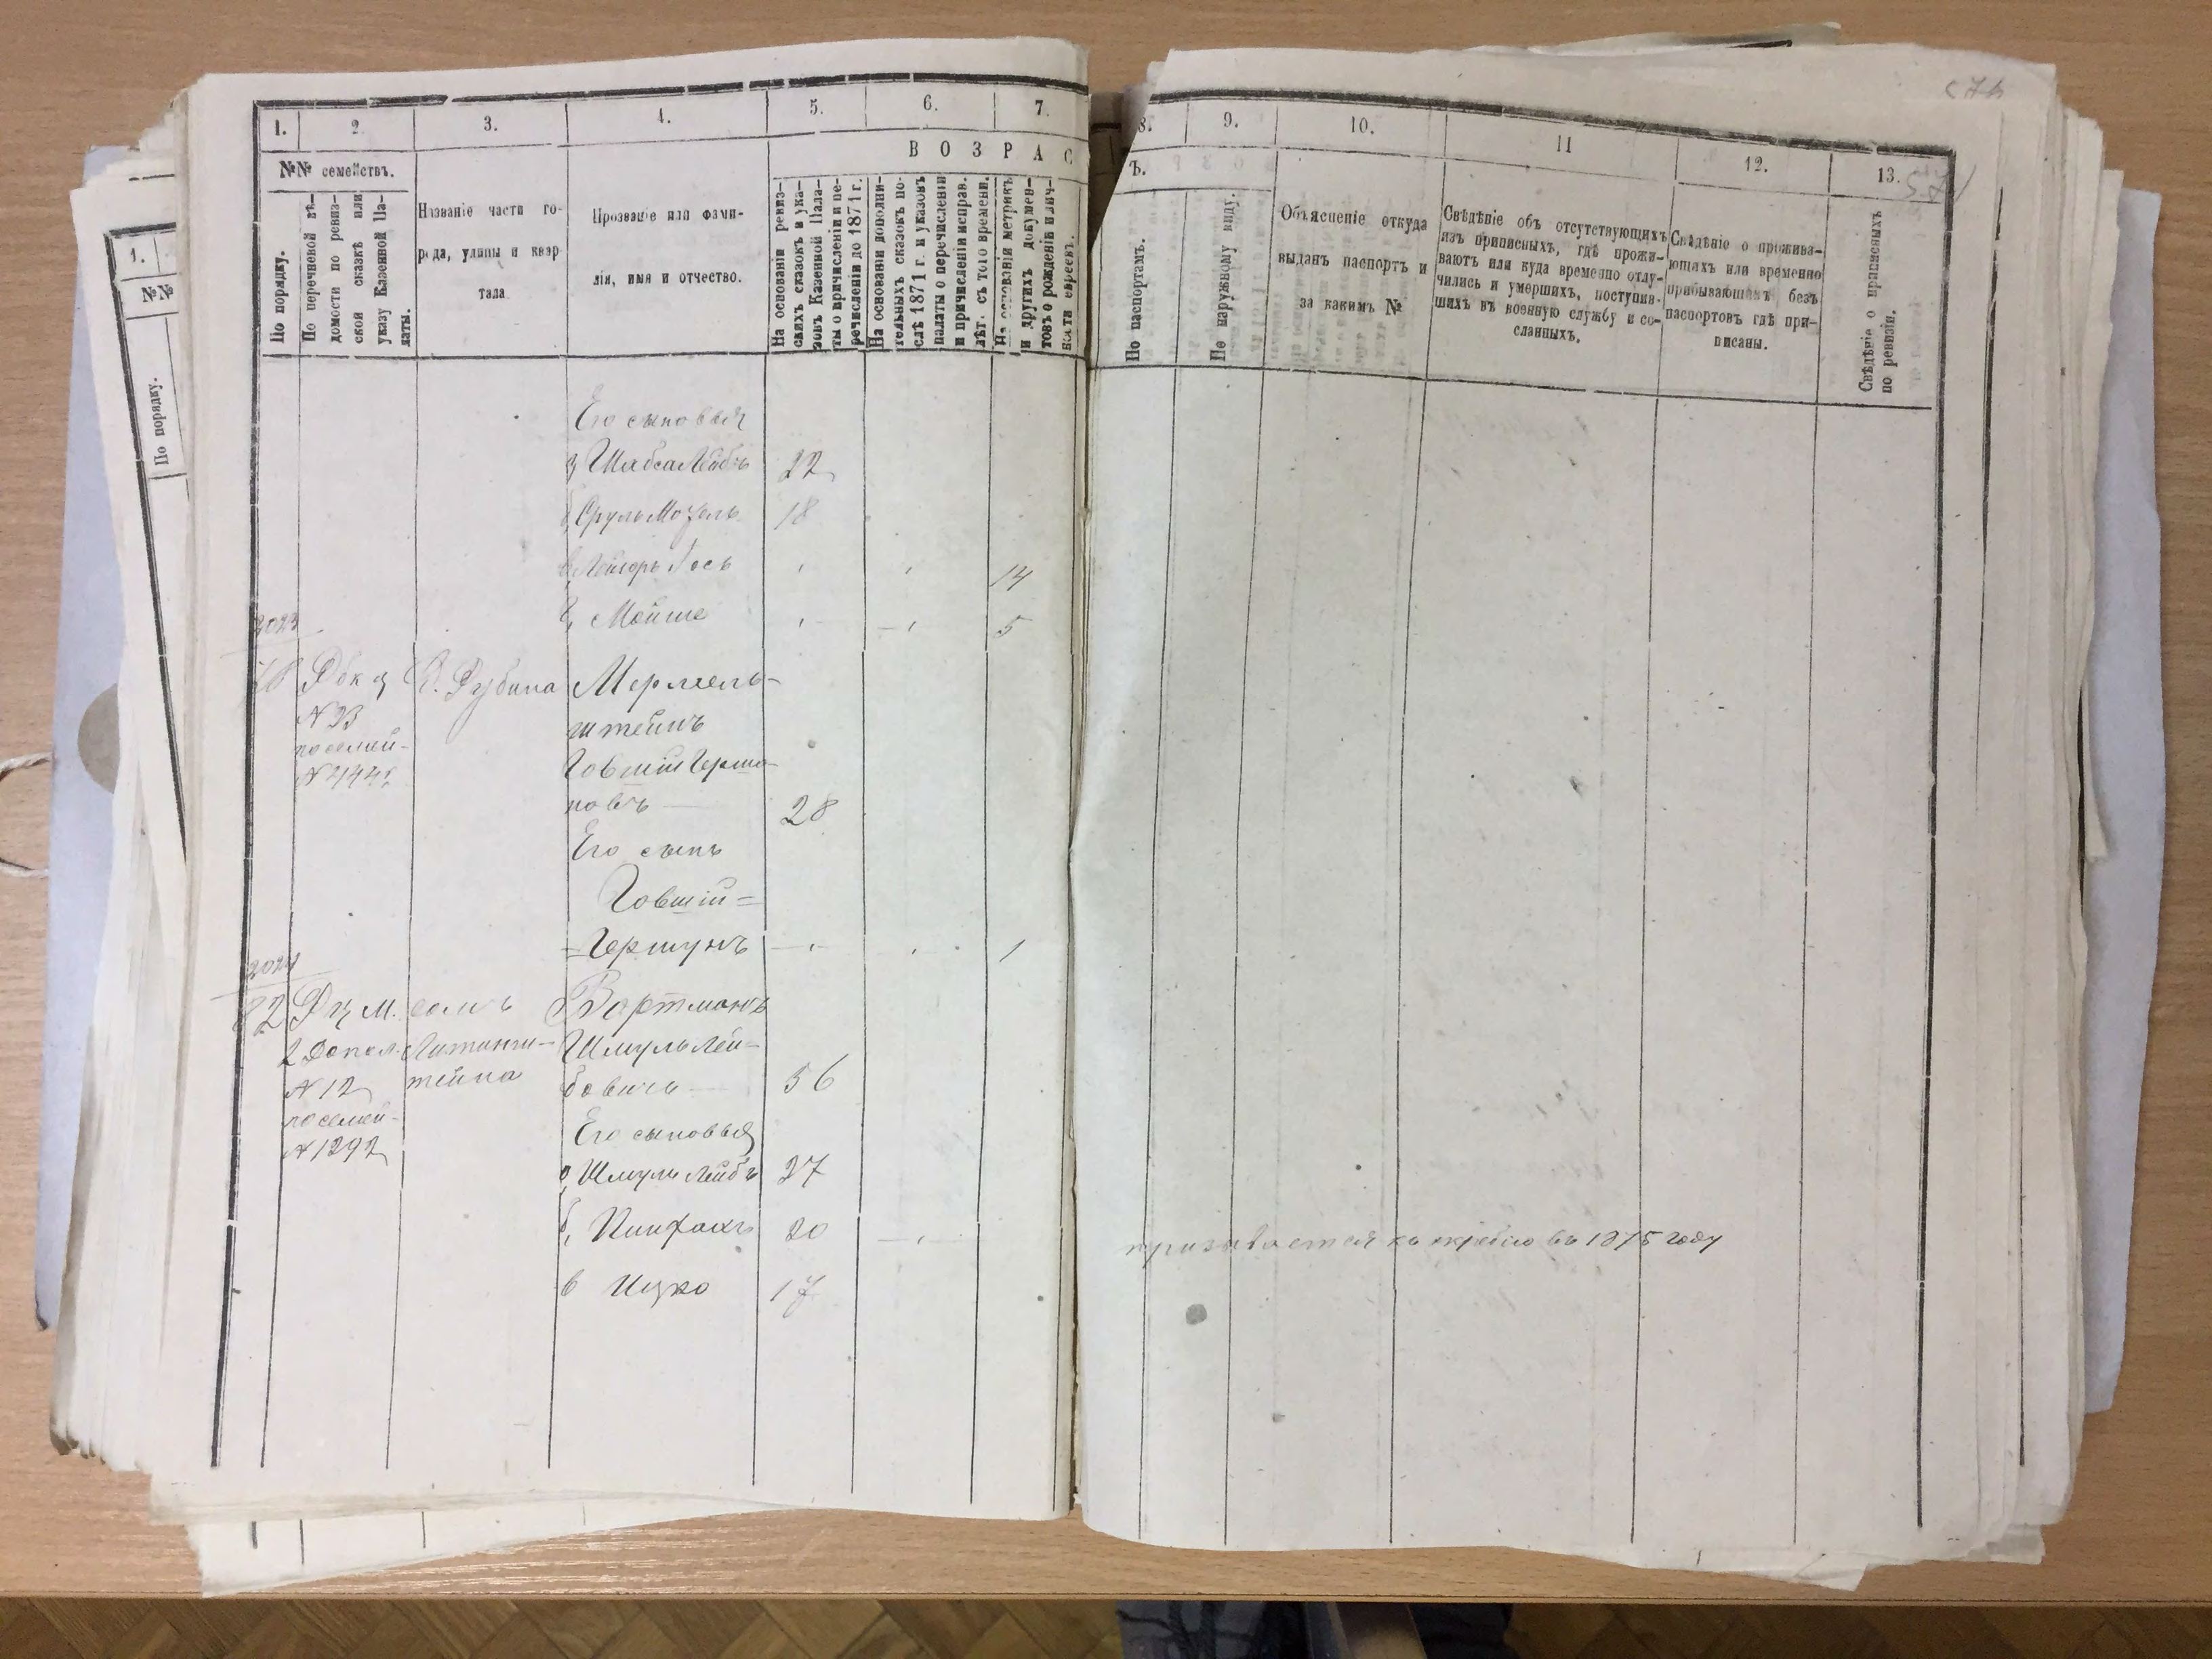 1. 2. 3. 4. 5. 6. 7.
8. 9. 10. 11 12. 13.
В О З Р А С
Ъ.
№№ семействъ.
По порядку.
По перечневой вѣ-
домости по ревиз-
ской сказкѣ или
указу Казенной Па-
латы.
Названіе части го-
рода, улицы и квар
тала
Прозваніе или фами-
лія, имя и отчество.
На основаніи ревиз-
скихъ сказокъ и ука-
зовъ Казенной Пала-
ты о причисленіи и пе-
речисленіи до 1871 г.
На основаніи дополни-
тельныхъ сказокъ по-
слѣ 1871 г. и указовъ
палаты о перечисленіи
и причисленіи исправ.
лѣт. съ того времени.
На основаніи метрикъ
и другихъ докумен-
товъ о рожденіи и лич-
ности евреевъ.
По паспортамъ.
По наружному виду.
Объясненіе откуда
выданъ паспортъ и
за какимъ №
Свѣдѣніе объ отсутствующихъ
изъ приписныхъ, гдѣ прожи-
ваютъ или куда временно отлу-
чились и умершихъ, поступив-
шихъ въ военную службу и со-
сланныхъ.
Свѣдѣніе о прожива-
ющихъ или временно
прибывающихъ безъ
паспортовъ гдѣ при-
писаны.
Свѣдѣніе о приписныхъ
по ревизіи.
1.
№№
По порядку.
Его сыновья
22
18
14
Мойше 5
2023
Рубина Мермель-
N 23 штейнъ
по семей-
Говшій Гершо-
новъ 28
Его сынъ
Говшій=
=Гершунъ 1
2024
82 Вортманъ
2 Допол. Шмуль Лей-
N 12 тейна бовичъ 56
по семей-
Его сыновья
N 1292
а, Шмуль Лейбъ 27
б, Пинхасъ 20 призывается къ жребію въ 1875 году
в Ицко 17